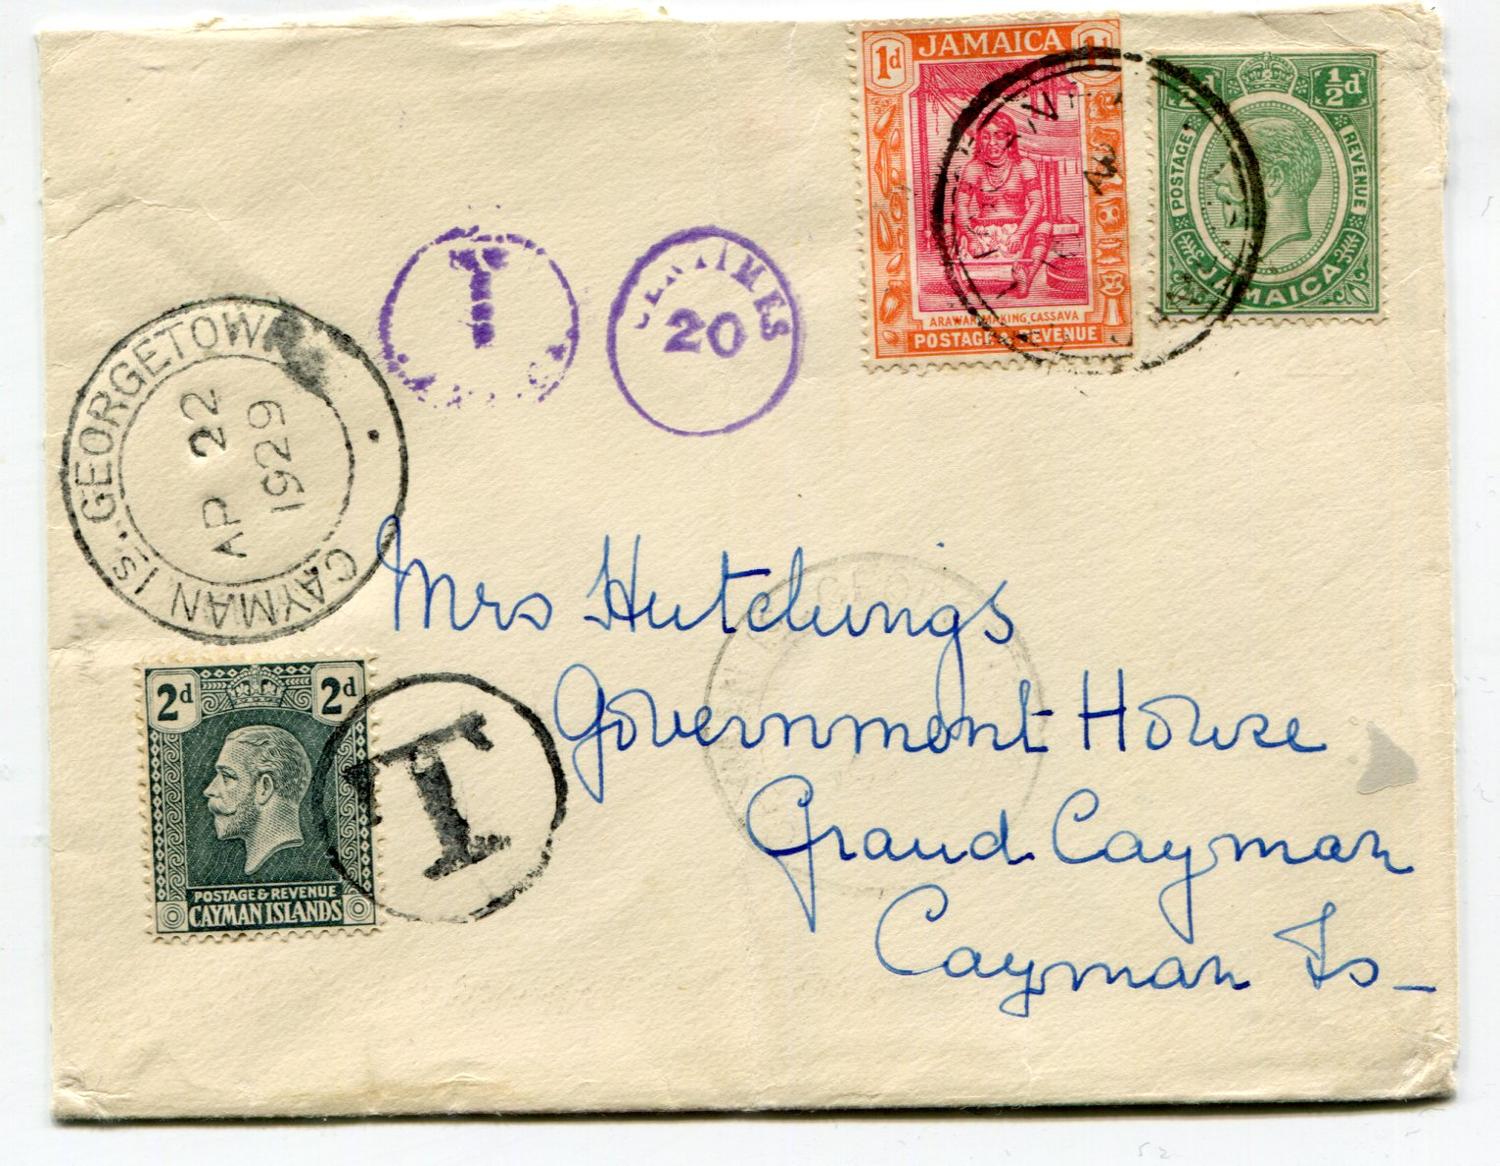 1d JAMAICA 1d
ARAWAK MAKING CASSAVA
POSTAGE & REVENUE
½d ½d
POSTAGE & REVENUE
JAMAICA
T
CENTIMES
20
GEORGETOWN
CAYMAN IS.
AP 22
1929
2d 2d
POSTAGE & REVENUE
CAYMAN ISLANDS
T
Mrs Hutchings
Government House
Grand Cayman
Cayman Is_